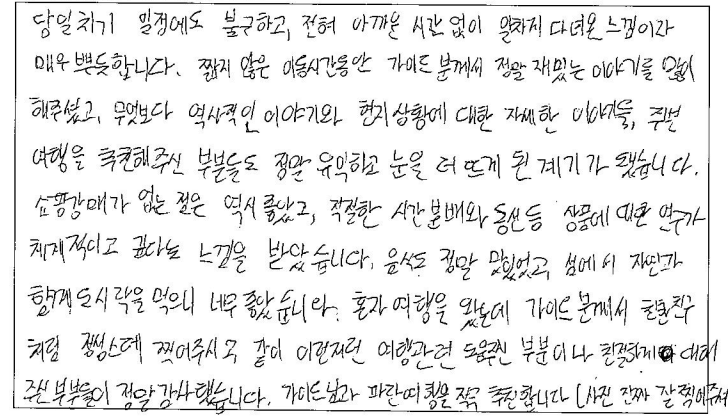 당일치기 일정에도 불구하고, 전혀 아까운 시간 없이 알차지 다녀온 느낌이라
매우 뿌듯합니다. 짧지 않은 이동시간동안 가이드 분께서 정말 재밌는 이야기를 많이
해주셨고, 무엇보다 역사적인 이야기와 현지 상황에 대한 자세한 이야기들, 주변
여행을 추천해주신 부분들도 정말 유익하고 눈을 더 뜨게 된 계기가 됐습니다.
쇼핑강매가 없는 점은 역시 좋았고, 적절한 시간분배와 동선 등 상품에 대한 연구가
체계적이고 깊다는 느낌을 받았습니다. 음식도 정말 맛있었고, 섬에서 자연과
함께 도시락을 먹으니 너무 좋았습니다. 혼자 여행을 왔는데 가이드 분께서 친한친구
처럼 정성스레 찍어주시고 같이 이런저런 여행관련 도움주신 부분이나 친절하게 대해
주신 부분들이 정말 감사했습니다. 가이드님과 파란여행을 적극 추천합니다 (사진 진짜 잘 찍어주셔